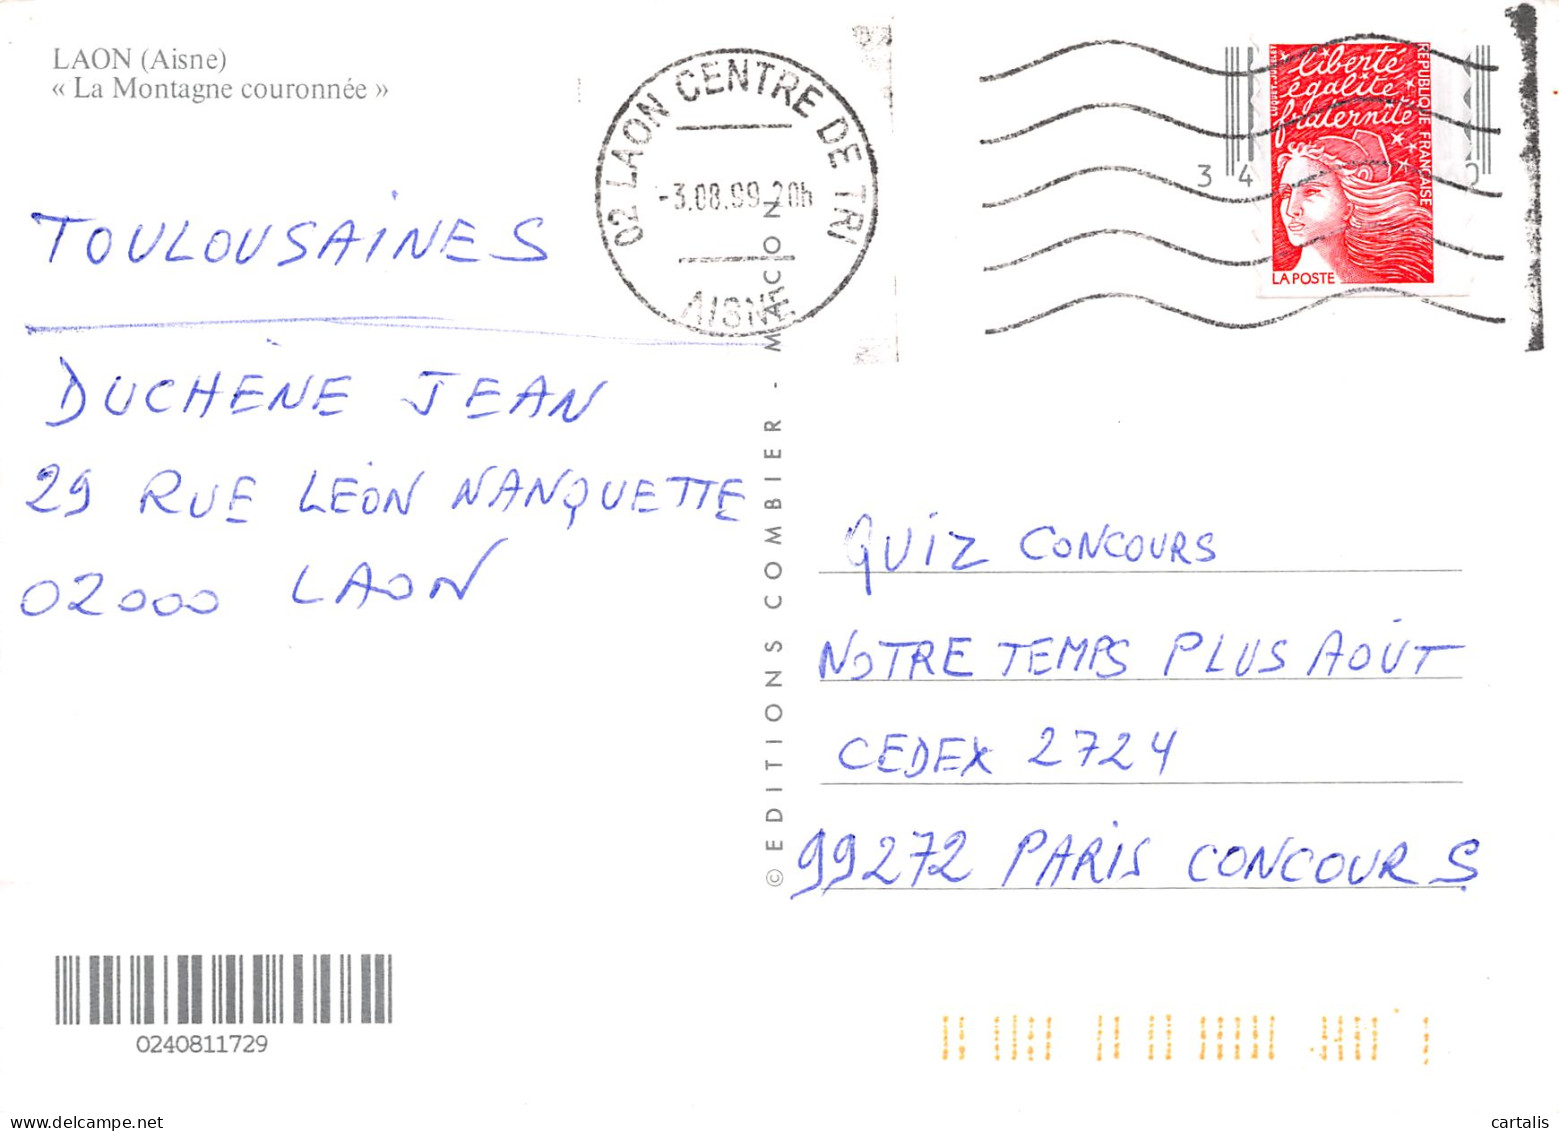 LAON (Aisne)
« La Montagne couronnée »
02 LAON CENTRE DE TRI
-3.08.99 20h
AISNE
liberté
égalité
fraternité
REPUBLIQUE FRANÇAISE
LUQUET-JUMELET
LA POSTE
3 4 0
TOULOUSAINES
DUCHENE JEAN
29 RUE LÉON NANQUETTE
02000 LAON
© EDITIONS COMBIER - MACON
QUIZ CONCOURS
NOTRE TEMPS PLUS AOÛT
CEDEX 2724
99272 PARIS CONCOURS
0240811729
cartalis
delcampe.net